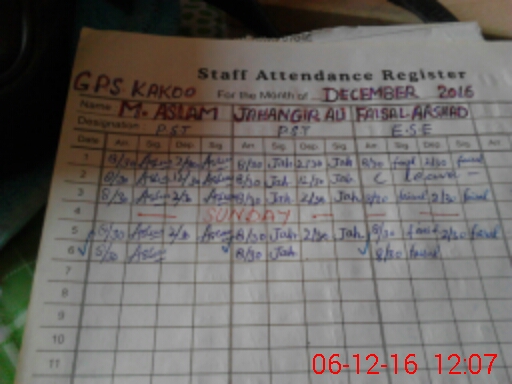 Staff Attendance Register
GPS KAKOO For the Month of DECEMBER 2016
Name M. ASLAM JAHANGIR ALI FAISAL ARSHAD
Designation P.S.T P.S.T E.S.E
Date Arr. Sig. Dep. Sig. Arr. Sig. Dep. Sig. Arr. Sig. Dep. Sig.
1 8/30 Aslam 2/30 Aslam 8/30 Jah 2/30 Jah 8/30 faisal 2/30 faisal
2 8/30 Aslam 12/30 Aslam 8/30 Jah 12/30 Jah Leave
3 8/30 Aslam 2/30 Aslam 8/30 Jah 2/30 Jah 8/30 faisal 2/30 faisal
4 SUNDAY
5 8/30 Aslam 2/30 Aslam 8/30 Jah 2/30 Jah 8/30 faisal 2/30 faisal
6 8/30 Aslam 8/30 Jah 8/30 faisal
7
8
9
10
11
06-12-16 12:07